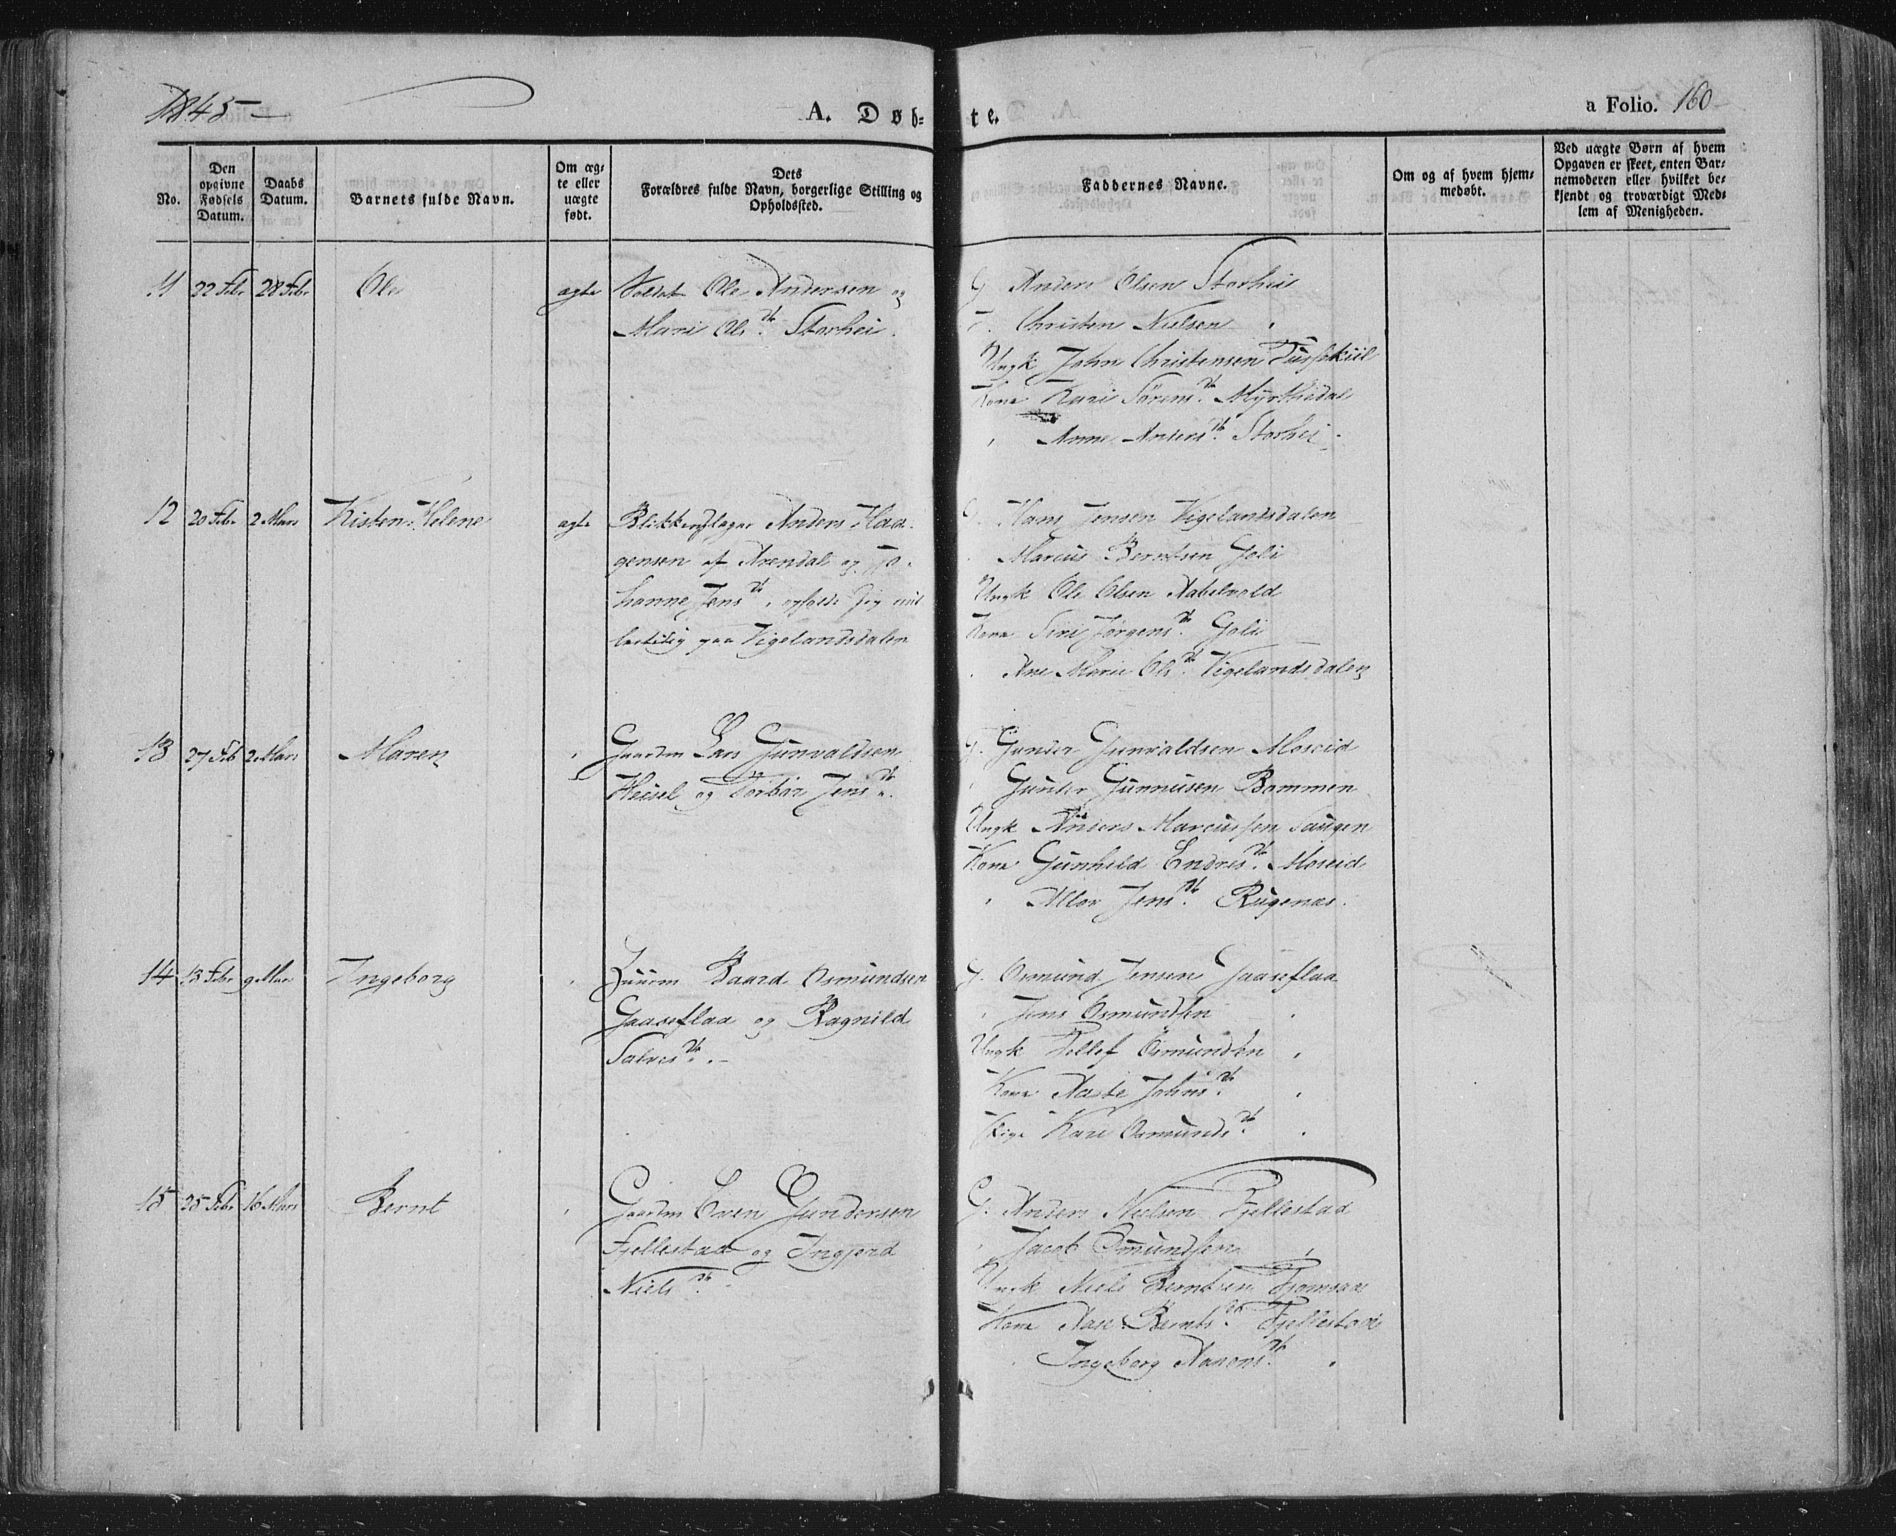 1845
A. Døb-
te.
a Folio. 160
No.
Den
opgivne
Fødsels
Datum.
Daabs
Datum.
Barnets fulde Navn.
Om æg-
te eller
uægte
født.
Dets
Forældres fulde Navn, borgerlige Stilling og
Opholdssted.
Faddernes Navne.
Om og af hvem hjem-
medøbt.
Ved uægte Børn af hvem
Opgaven er skeet, enten Bar-
nemoderen eller hvilket be-
kjendt og troværdigt Med-
lem af Menigheden.
11 22 Febr 28 Febr Ole ægte Soldat Ole Andersen og
Mari Ols Dtr. Storhei.
G Anders Olsen Storhei
Christen Nielsen "
Ungk John Christensen
Kone Kari Sörens Dtr.
" Anne Anders Dtr. Storhei.
12 20 Febr 2 Mars Kisten Helene ægte Blikkenslager Anders Haa-
gensen af Arendal og Jo-
hanne Jens Dtr.
paa Vigelandsdalen
G. Hans Jensen Vigelandsdalen
. Marcus Berntsen Goli
Ungk Ole Olsen Aabelvold
Kone Siri Jørgens Dtr. Goli
. Ane Marie Ols Dtr. Vigelandsdalen
13 27 Feb 2 Mars Maren " Gaardm Lars Gunvaldsen
Heisel og Torbør Jens Dtr.
G. Gunder Gunvaldsen Moseid
" Gunder Gunnusen Bommen
Ungk Anders Marcussen Haugen
Kone Gunhild Endres Dtr. Moseid
" Jens Dtr. Rugenæs.
14 13 Febr 9 Mar Ingeborg " Huusm Baard Osmundsen
Gaaseflaa og Ragnild
Salves Dtr. -
G. Osmund Jensen Gaaseflaa
" Jens Osmundsen "
Ungk Tellef Osmundsen "
Kone Aaste Johns Dtr. "
Pige Kari Osmunds Dtr. "
15 25 Febr 16 Mars Bernt " Gaardm Even Gundersen
Fjellestad og Ingjerd
Niels Dtr.
G. Anders Nielsen Fjellestad
" Jacob Osmundsen "
Ungk Niels Berntsen
Kone Aase Bernts Dtr. Fjellestad
" Ingeborg Aanens Dtr. "